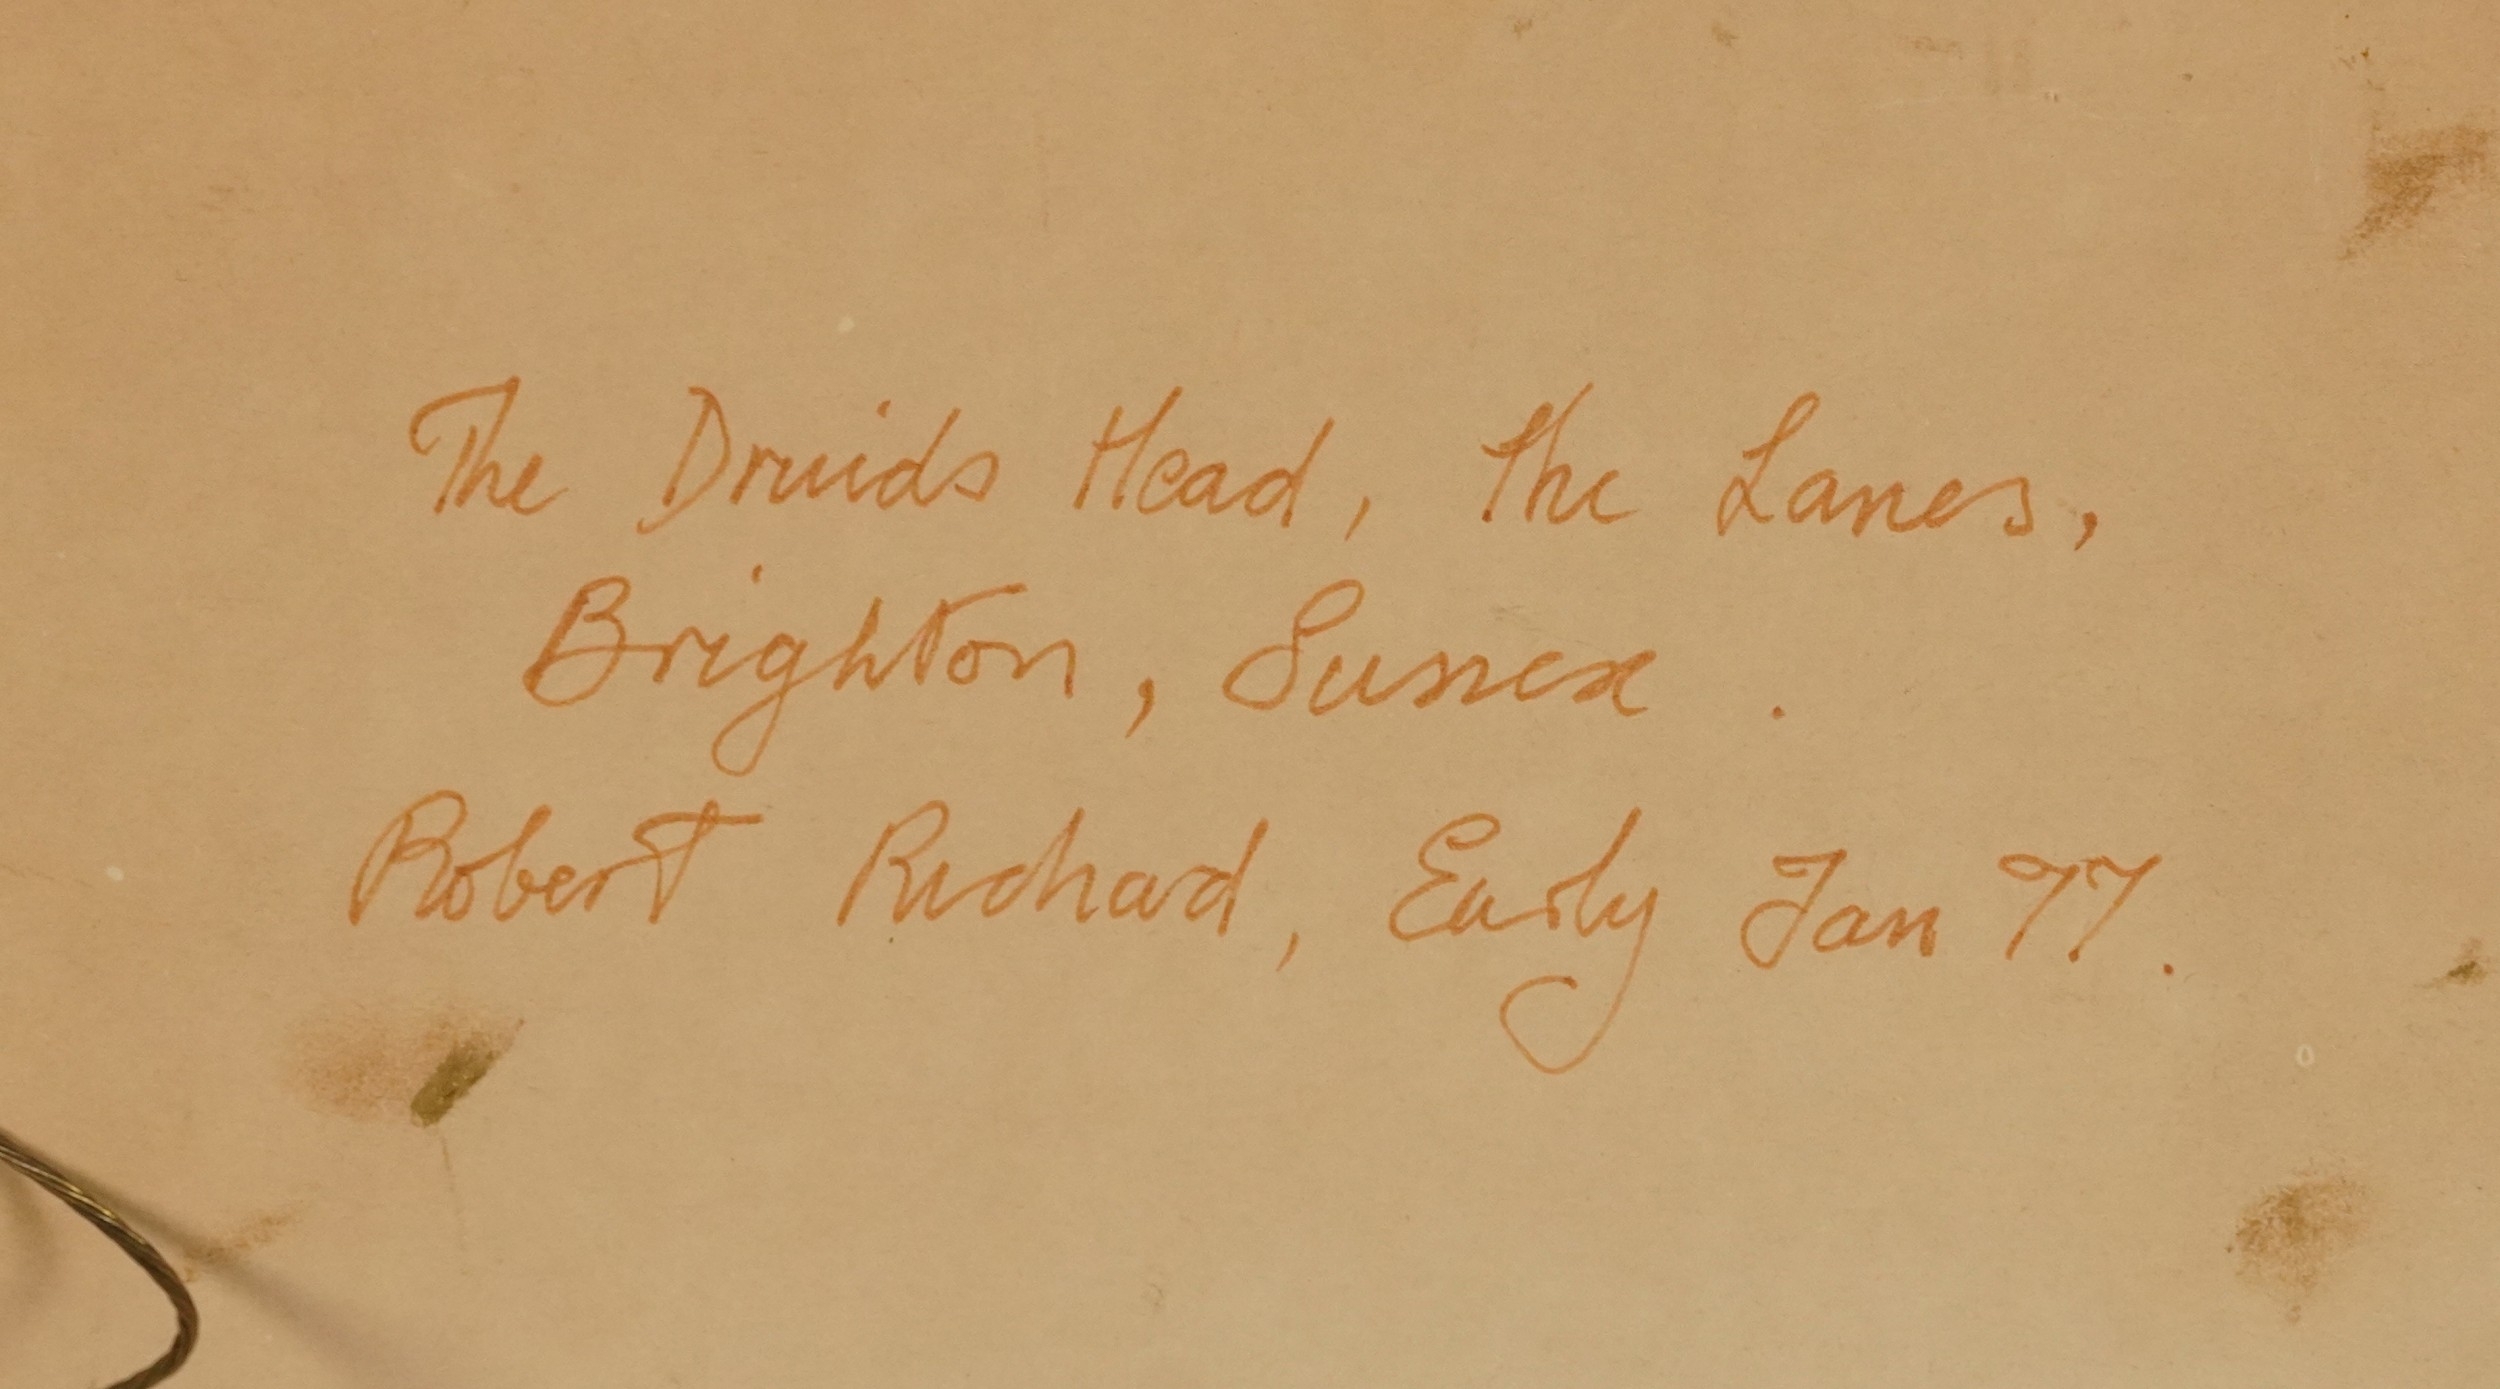 The Druids Head, The Lanes,
Brighton, Sussex.
Robert Richard, Early Jan 77.